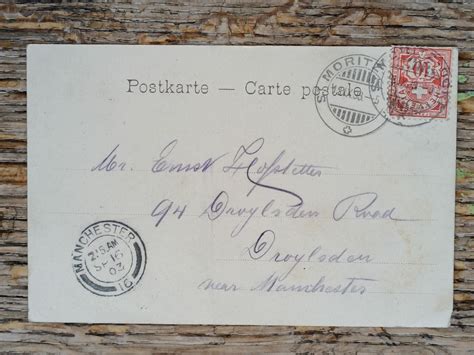 Postkarte — Carte postale
ST. MORITZ
Mr. Ernst Hofstetter
94 Droylsden Road
Droylsden
near Manchester
MANCHESTER
2.15 AM
SP 16
02
1C